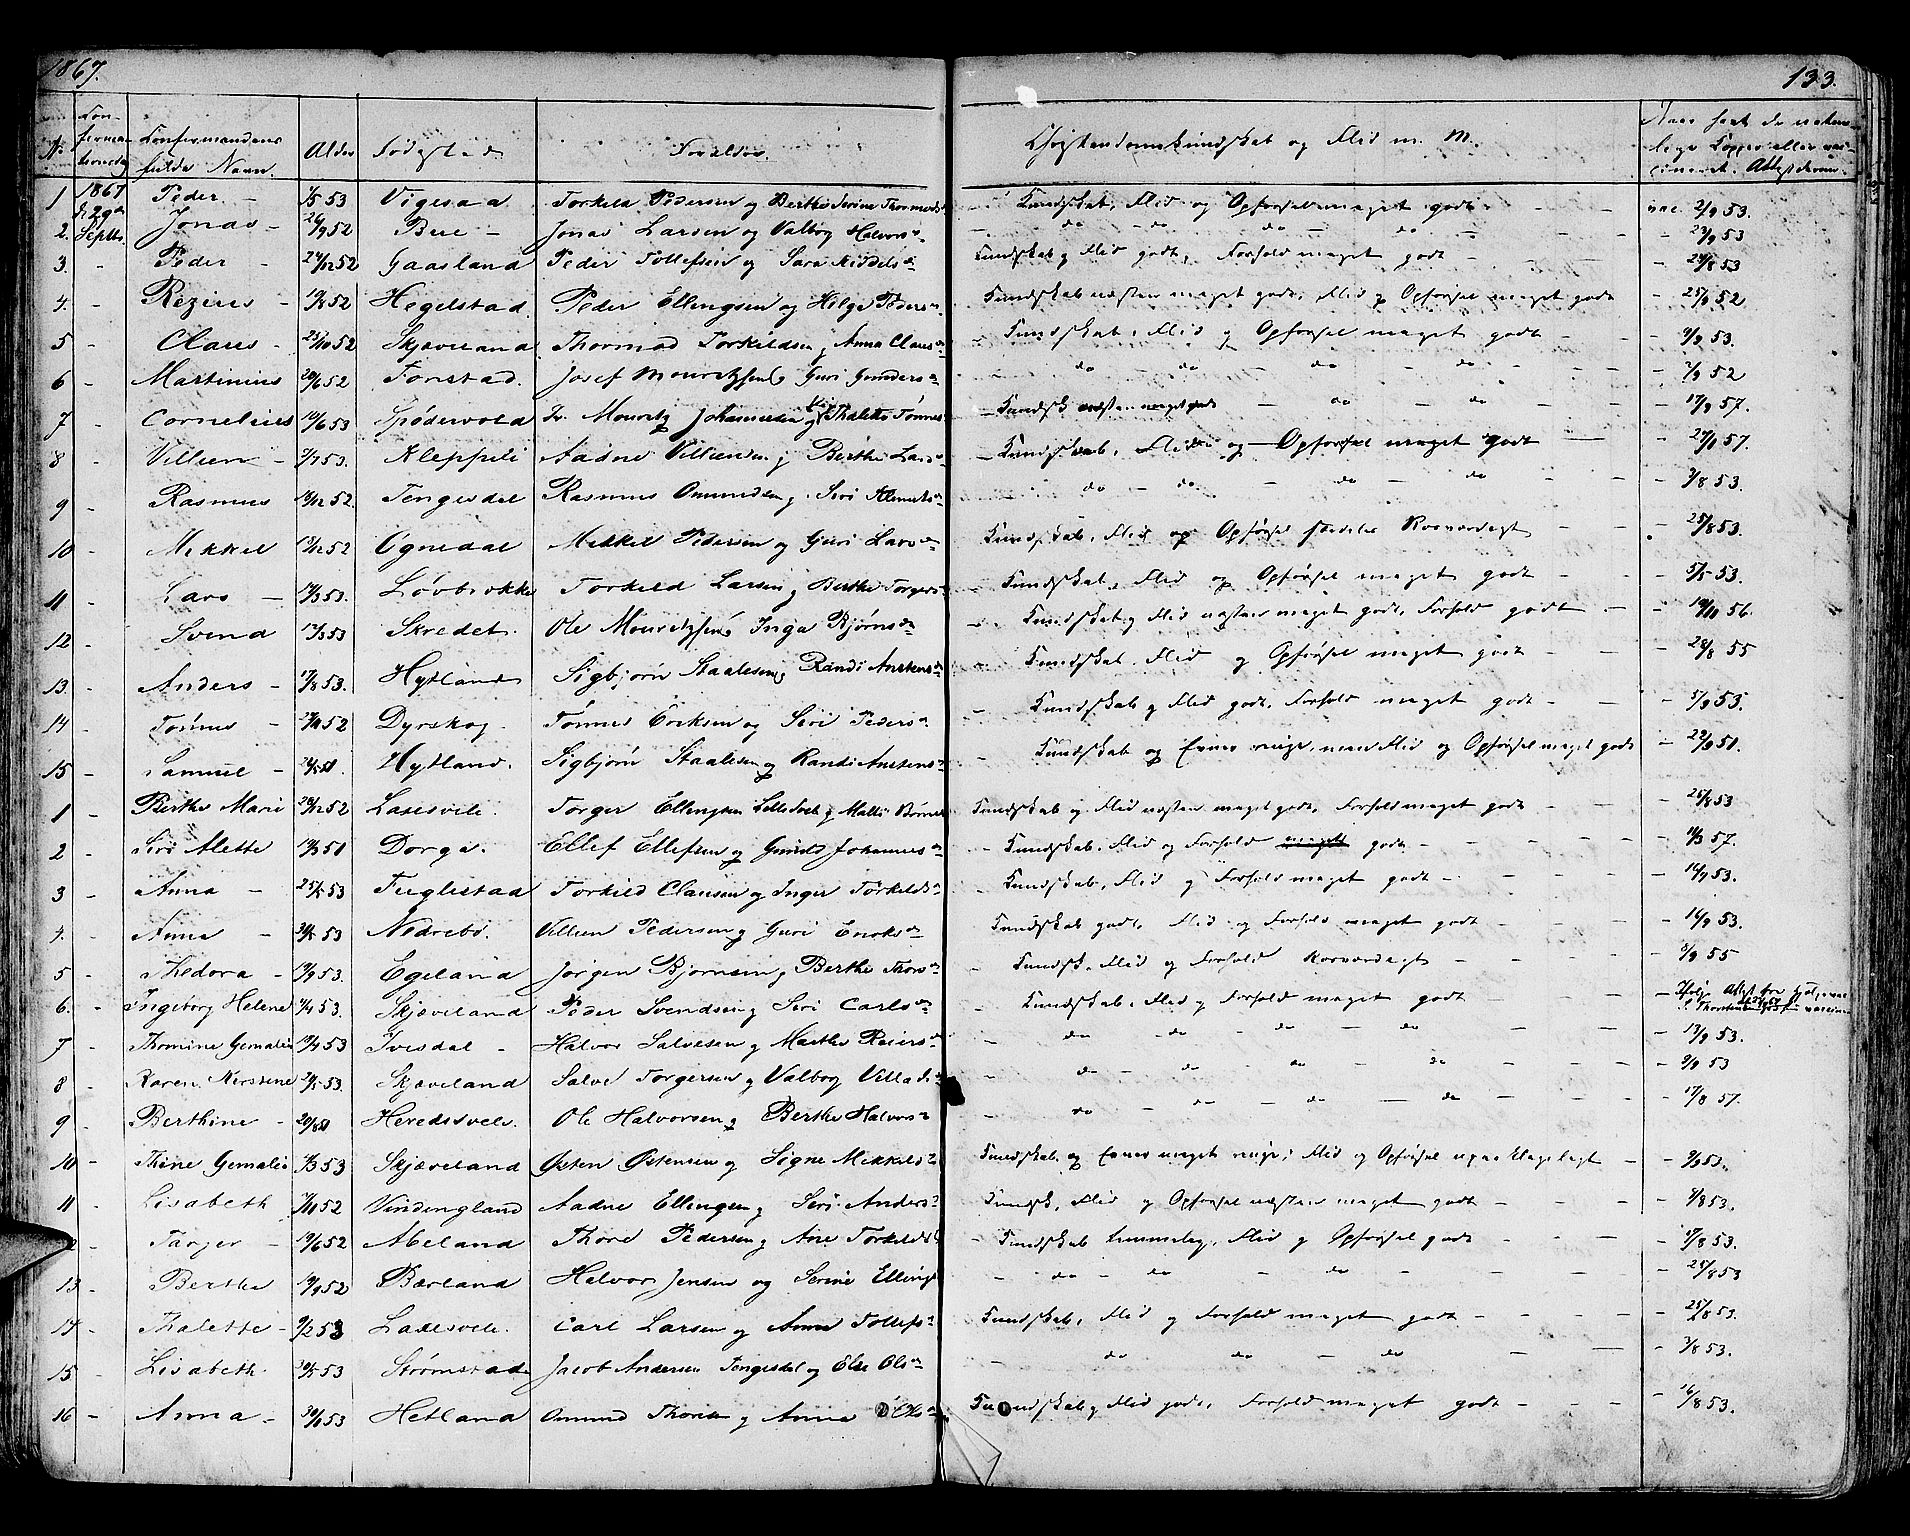 1867. 133.
No Confirmationsdag Confirmandens fulde Navn. Alder Fødested Forældre. Christendomskundskab og Flid m. M. Naar havt de naturlige Kopper eller vaccineret. Attest derom
1 1867 d. 29de Septbr. Peder - 1/5 53 Vigesaa Torkild Pedersen og Berthe Serine Thormodsd - Kundskab, Flid og Opførsel meget godt - vac. 2/9 53.
2. Jonas - 26/9 52 Bue - Jonas Larsen og Valbog Halvorsdr - do - do do - do - - 23/9 53
3. - Peder - 24/12 52 Gaasland Peder Tollefsen og Sara Kiddelsdr Kundskab og Flid godt, Forhold meget godt - - 24/8 53
4. - Rezius - 18/8 52 Hegelstad. Peder Ellingsen og Helge Pedersdr Kundskab næsten meget godt, Flid og Opførsel meget godt - 25/9 52
5 - Claus - 25/10 52 Skjæveland Thormod Torkildsen og Anna Clausdr - Kundskab, Flid og Opførsel meget godt - - 9/9 53.
6 - Martinius 20/6 52 Fonstad. Josef Mouritzsen og Guri Gundersdr - do do - do - do - - 7/9 52
7 - Cornelius 10/6 53 Spødervold Mouritz Johannesen og Thalette Tønnes - Kundsk næsten meget godt - do - do - - 17/9 57.
8 - Villien - 7/7 53. Kleppeli Aadne Villumsen og Berthe Larsdr - Kundskab, Flid og Opførsel meget godt - - 29/9 57.
9 - Rasmus 18/12 52. Tengesdal Rasmus Omundsen og Seri - do - do - do - do - 3/8 53.
10 - Mikkel 13/12 52 Ognedal Mikkel Pedersen og Guri Larsdr Kundskab, Flid og Opførsel særdeles Rosværdigt - - 25/8 53.
11 - Lars - 19/3 53. Løvbrække Torkild Larsen og Berthe Torgersdr - Kundskab, Flid og Opførsel meget godt - - - 5/5 53.
12 Svend 17/3 53 Skredet. Ole Mouritzsen og Inga Bjørnsdr - Kundskab og Flid næsten meget godt, Forhold godt - - 10/11 56.
13. - Anders - 17/8 53. Hytland Sigbjørn Staalesen og Randi Austensdr - Kundskab, Flid og Opførsel meget godt - - - 28/8 55
14 - Tønnes - 27/11 52 Dyrskog. Tønnes Eriksen og Seri Pedersdr - Kundskab og Flid godt, Forhold meget godt - - - 5/9 53.
15 - Samuel - Hytland. Sigbjørn Staalesen og Randi Austensdr Kundskab og Evner ringe, men Flid og Opførsel meget godt - 22/9 51.
1 - Berthe Marie 28/12 52 Laxesvele. Torger Ellingsen og Malli Kundskab og Flid næsten meget godt, Forhold meget godt - - - 25/8 53
2 - Seri Alette 13/3 51 Dorga. Ellef Ellefsen og Gunild Johannesdr - Kundskab, Flid og Forhold meget godt - - - - 11/3 57.
3 - Anna - 25/5 53 Fuglestad Torkild Clausen og Inger Torkildsdr - Kundskab, Flid og Forhold meget godt - - - - 16/9 53.
4. - Anna - 31/5 53 Nedrebø. Villien Pedersen og Guri Eriksdr Kundskab godt, Flid og Forhold meget godt - - - 16/9 53.
5 - Thedora - 13/9 53. Egeland Jørgen Bjørnsen og Berthe Thorsdr - Kundsk, Flid og Forhold Rosværdigt - - - - 8/9 55
6. - Ingeborg Helene 1/4 53. Skjæveland Peder Svendsen og Seri Carlsdr - Kundskab, Flid og Forhold meget godt - - - Ifølge Attest fra
7 - Thomine Gemalia 19/4 53 Ivesdal - Halvor Salvesen og Marthe Reiersdr - do - do - do - do - - - 13/9 53.
8 - Karen Kerstine 2/5 53. Skjæveland Salve Torgersen og Valbog Villadsdr - do - do - do - do - - 2/9 53
9 - Berthine - Heredsvele. Ole Halvorsen og Berthe Halvorsdr - do - do - do - do - - - 17/8 57.
10 - Thine Gemalia 1/3 53 Skjæveland Østen Østensen og Signe Mikkelsdr Kundskab og Evner meget ringe; Flid og Opførsel upaaklageligt - - 9/9 53.
11 - Lisabeth 7/11 52 Vindingland Aadne Ellingsen og Seri Andersdr Kundsk, Flid og Opførsel næsten meget godt - - - 9/8 53.
Tarjer - 19/6 52 Abeland Thore Pedersen og Ane Torkilds - Kundskab temmelig, Flid og Opførsel godt - - - 17/8 53.
13 - Berthe 19/9 52 Bærland Halvor Jensen og Serine Ellings - do - do - do - - - 25/8 53
14 - Thalette - 9/2 53 Laxesvele. Carl Larsen og Anna Tollefsdr Kundskab, Flid og Forhold meget godt - - - - 25/8 53.
15 - Lisabeth. 30/5 53 Strømstad Jacob Andersen Tengesdal og Else Olsdr - do do - do - - - 3/8 53.
16 - Anna - 30/6 53 Hetland Omund Thorsen og Anna Olsdr Kundskab og Flid godt, Forhold meget godt - - - 16/8 53.